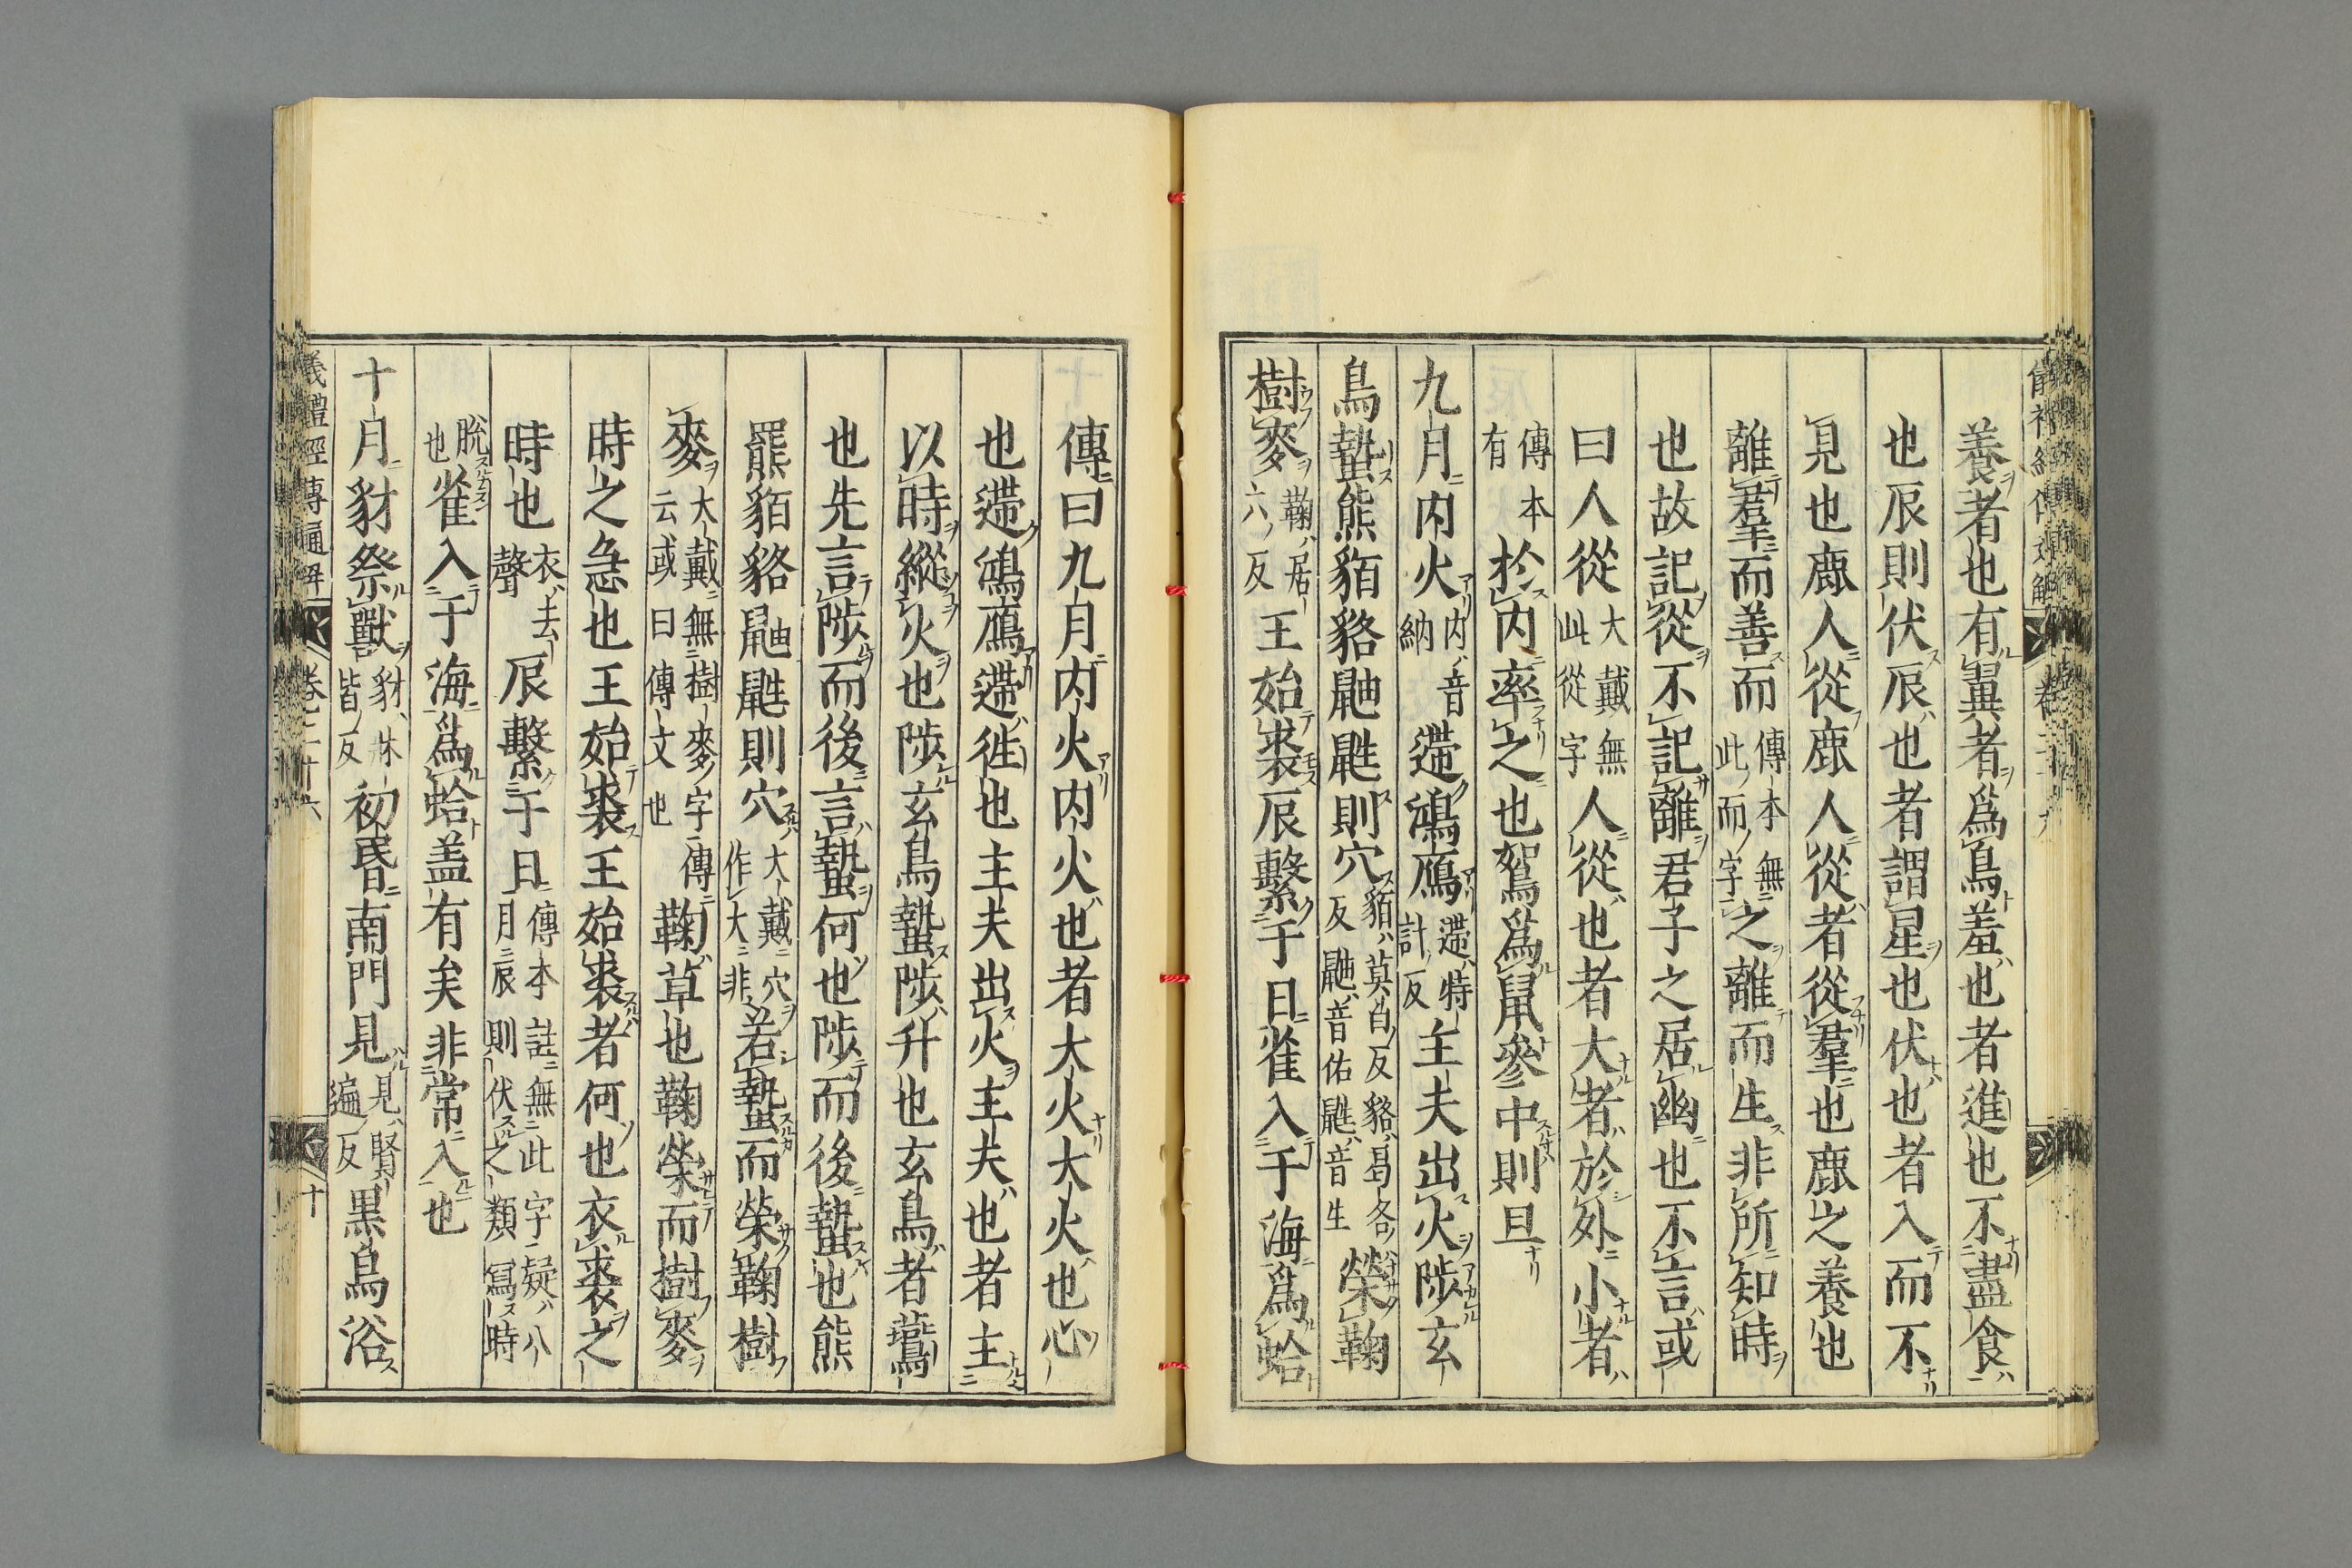 養者也有翼者爲鳥羞也者進也不盡食
也辰則伏辰也者謂星也伏也者入而不
見也鹿人從鹿人從者從羣也鹿之養也
離羣而善而傳本無此而字之離而生非所知時
也故記從不記離君子之居幽也不言或
曰人從大戴無此從字人從也者大者於外小者
傳本有於内率之也鴽爲鼠參中則旦
九月内火内音納遰鴻鴈遰特計反主夫出火陟玄
鳥蟄熊貊貉鼬鼪則穴貊莫白反貉曷各反鼬音佑鼪音生榮鞠
樹麥鞠居六反王始裘辰繫于日雀入于海爲蛤
傳曰九月内火内火也者大火大火也心
也遰鴻鴈遰徃也主夫出火主夫也者主
以時縱火也陟玄鳥蟄陟升也玄鳥者鷰
也先言陟而後言蟄何也陟而後蟄也熊
羆貊貉鼬鼪則穴大戴穴作大非若蟄而榮鞠樹
麥大戴無樹麥字傳云或曰傳文也鞠草也鞠榮而樹麥
時之急也王始裘王始裘者何也衣裘之
時也衣去聲辰繫于日傳本註無此字疑八月辰則伏之類寫時
脫也雀入于海爲蛤盖有矣非常入也
十月豺祭獸豺牀皆反初昬南門見見賢遍反黒鳥浴
儀禮經傳通解 卷二十六 十